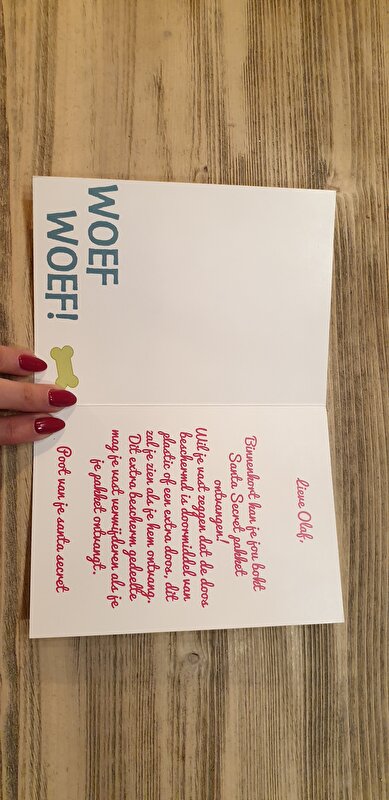 WOEF
WOEF!
Lieve Olaf,
Binnenkort kan je jou bokt
Santa Secret pakket
ontvangen!
Wil je vast zeggen dat de doos
beschermd is doormiddel van
plastic of een extra doos, dit
zal je zien als je hem ontvang.
Dit extra bescherm gedeelte
mag je vast verwijderen als je
je pakket ontvangt.
Poot van je santa secret